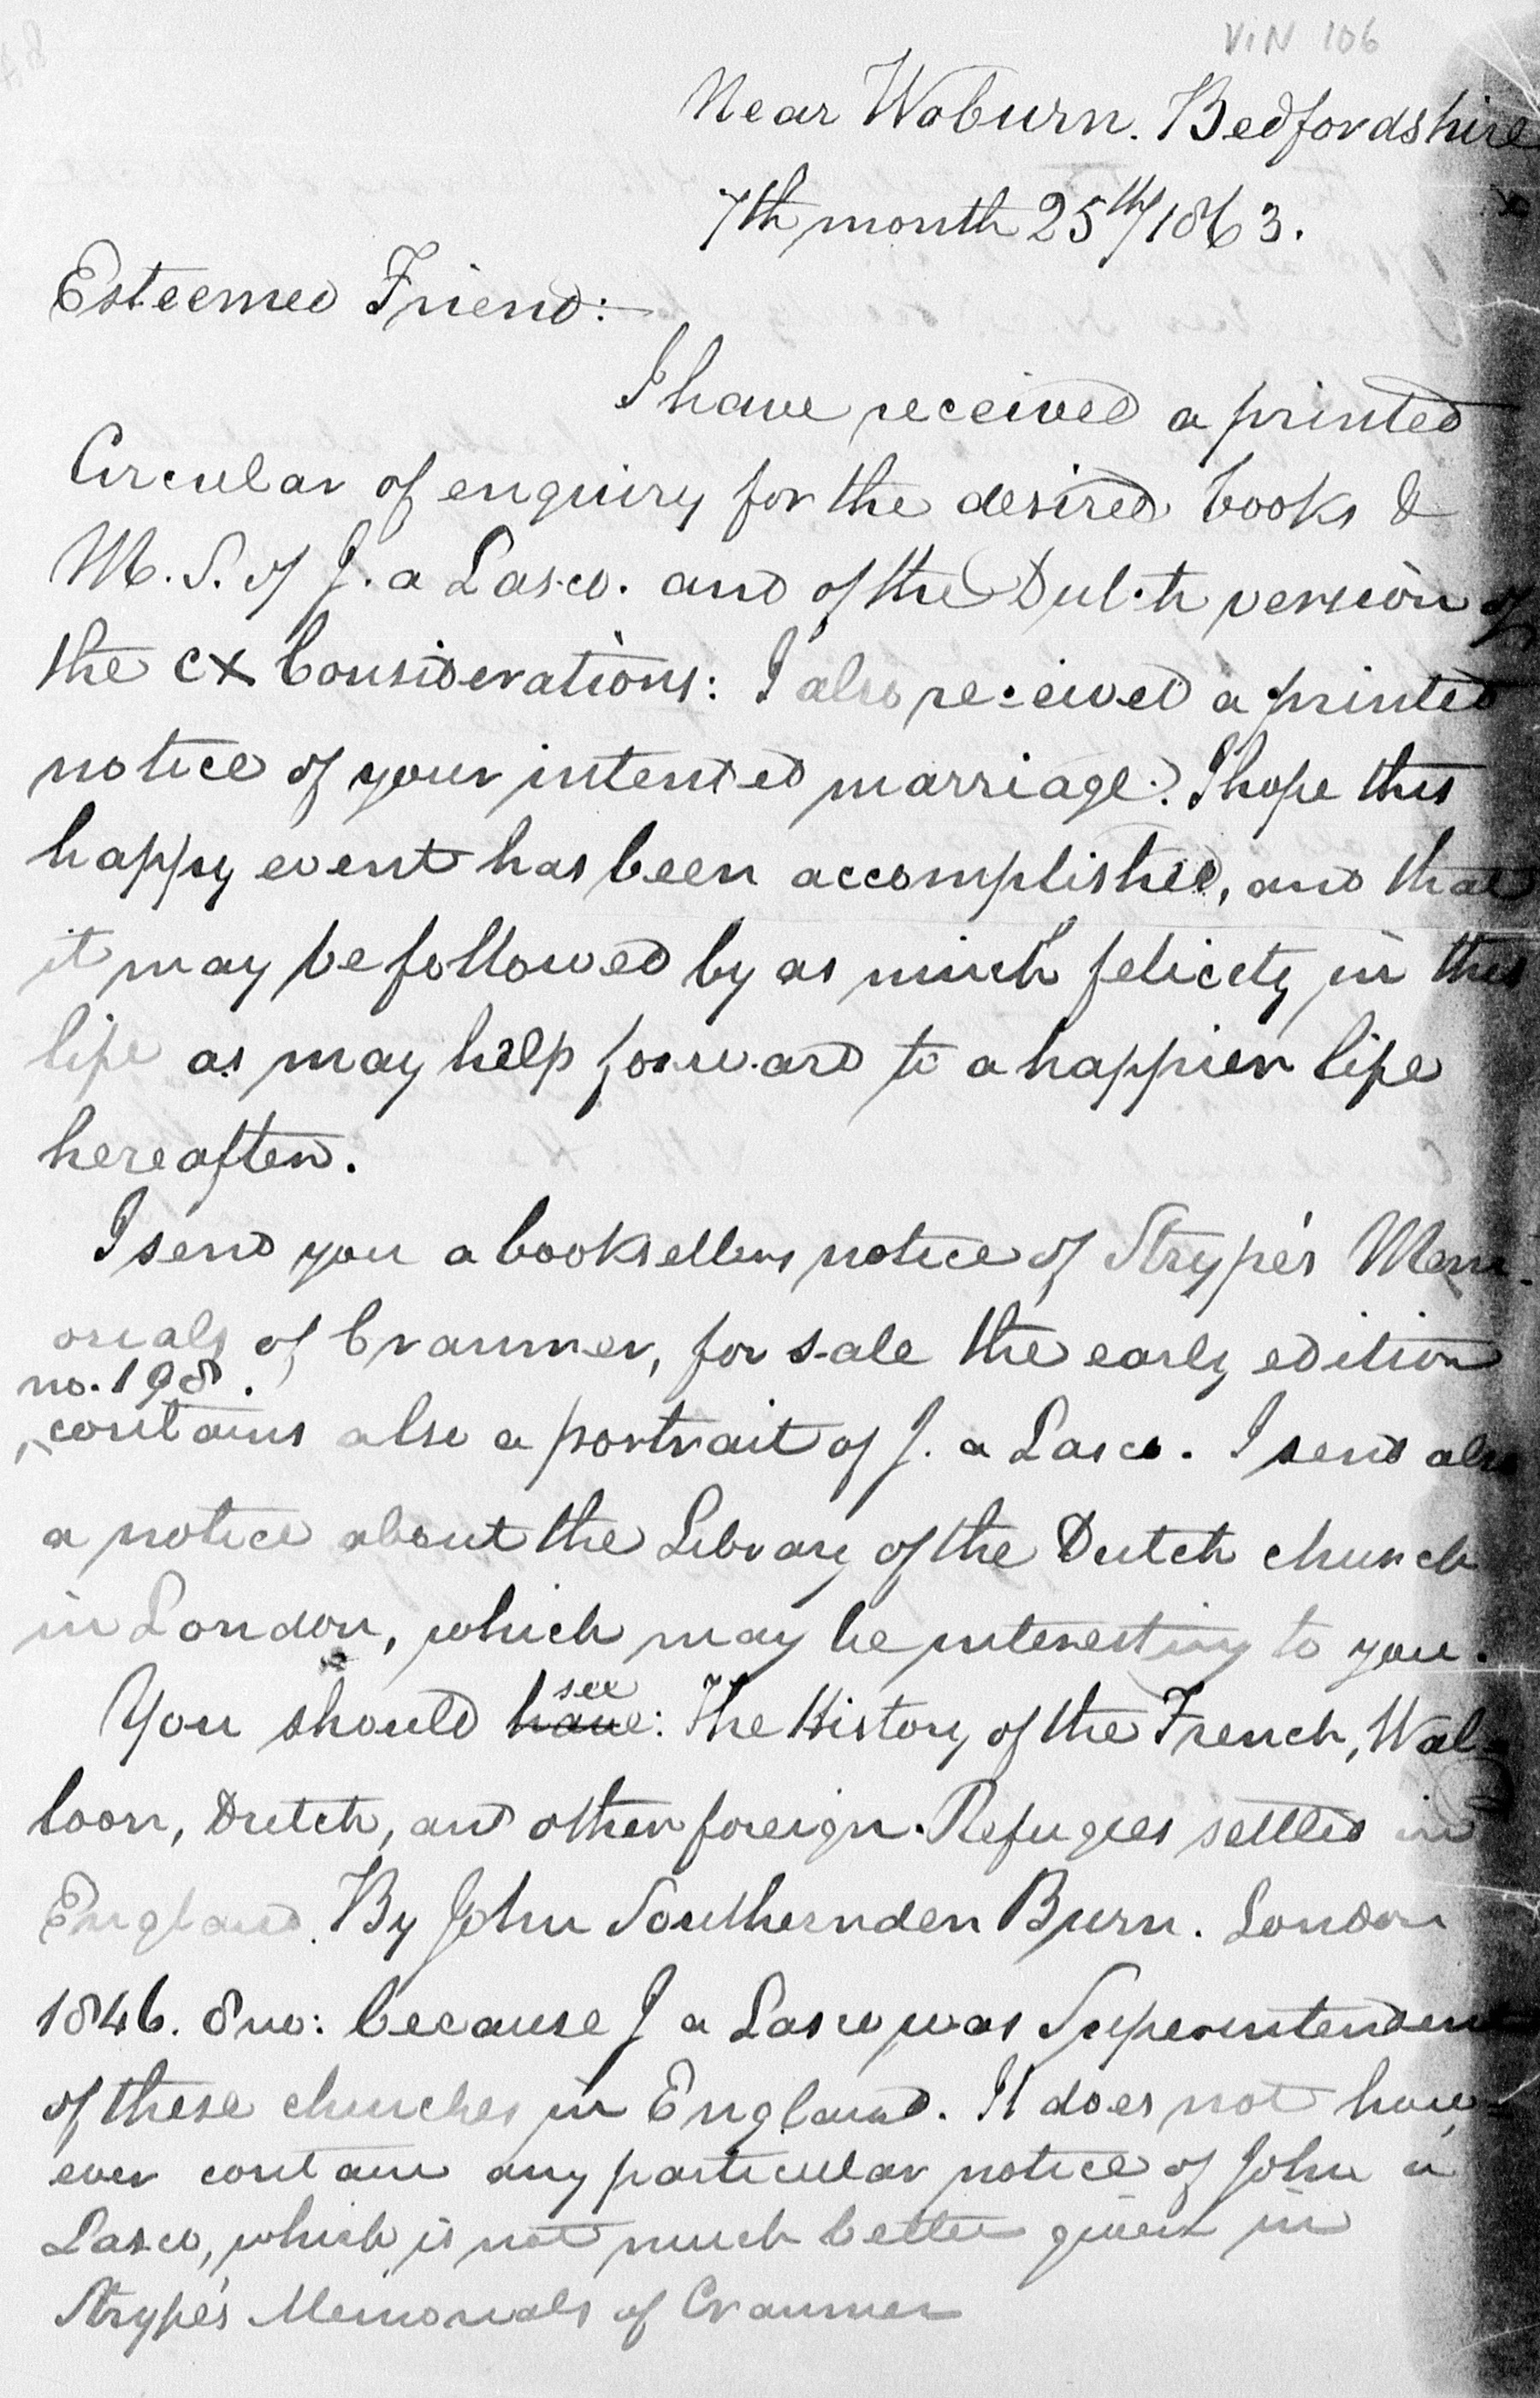 VIN 106
Near Woburn. Bedfordshire
7th month 25th/1863.
Esteemed Friend:
I have received a printed
Circular of enquiry for the desired books &
M.S. of J. a Lasco. and of the Dutch version of
the cx Considerations: I also received a printed
notice of your intented marriage: I hope this
happy event has been accomplished, and that
it may be followed by as much felicity in this
life as may help forward to a happier life
hereafter.
I send you a booksellers notice of Strype's Mem-
orials of Cranmer, for sale the early edition
no. 198.
contains also a portrait of J. a Lasco. I send also
a notice about the Library of the Dutch church
in London, which may be interesting to you.
see
You should have: The History of the French, Wal-
loon, Dutch, and other foreign Refugees settled in
England. By John Southernden Burn. London
1846. 8vo: because J a Lasco was Superintendent
of these churches in England. It does not how-
ever contain any particular notice of John a
Lasco, which is not much better given in
Strype's Memorials of Cranmer